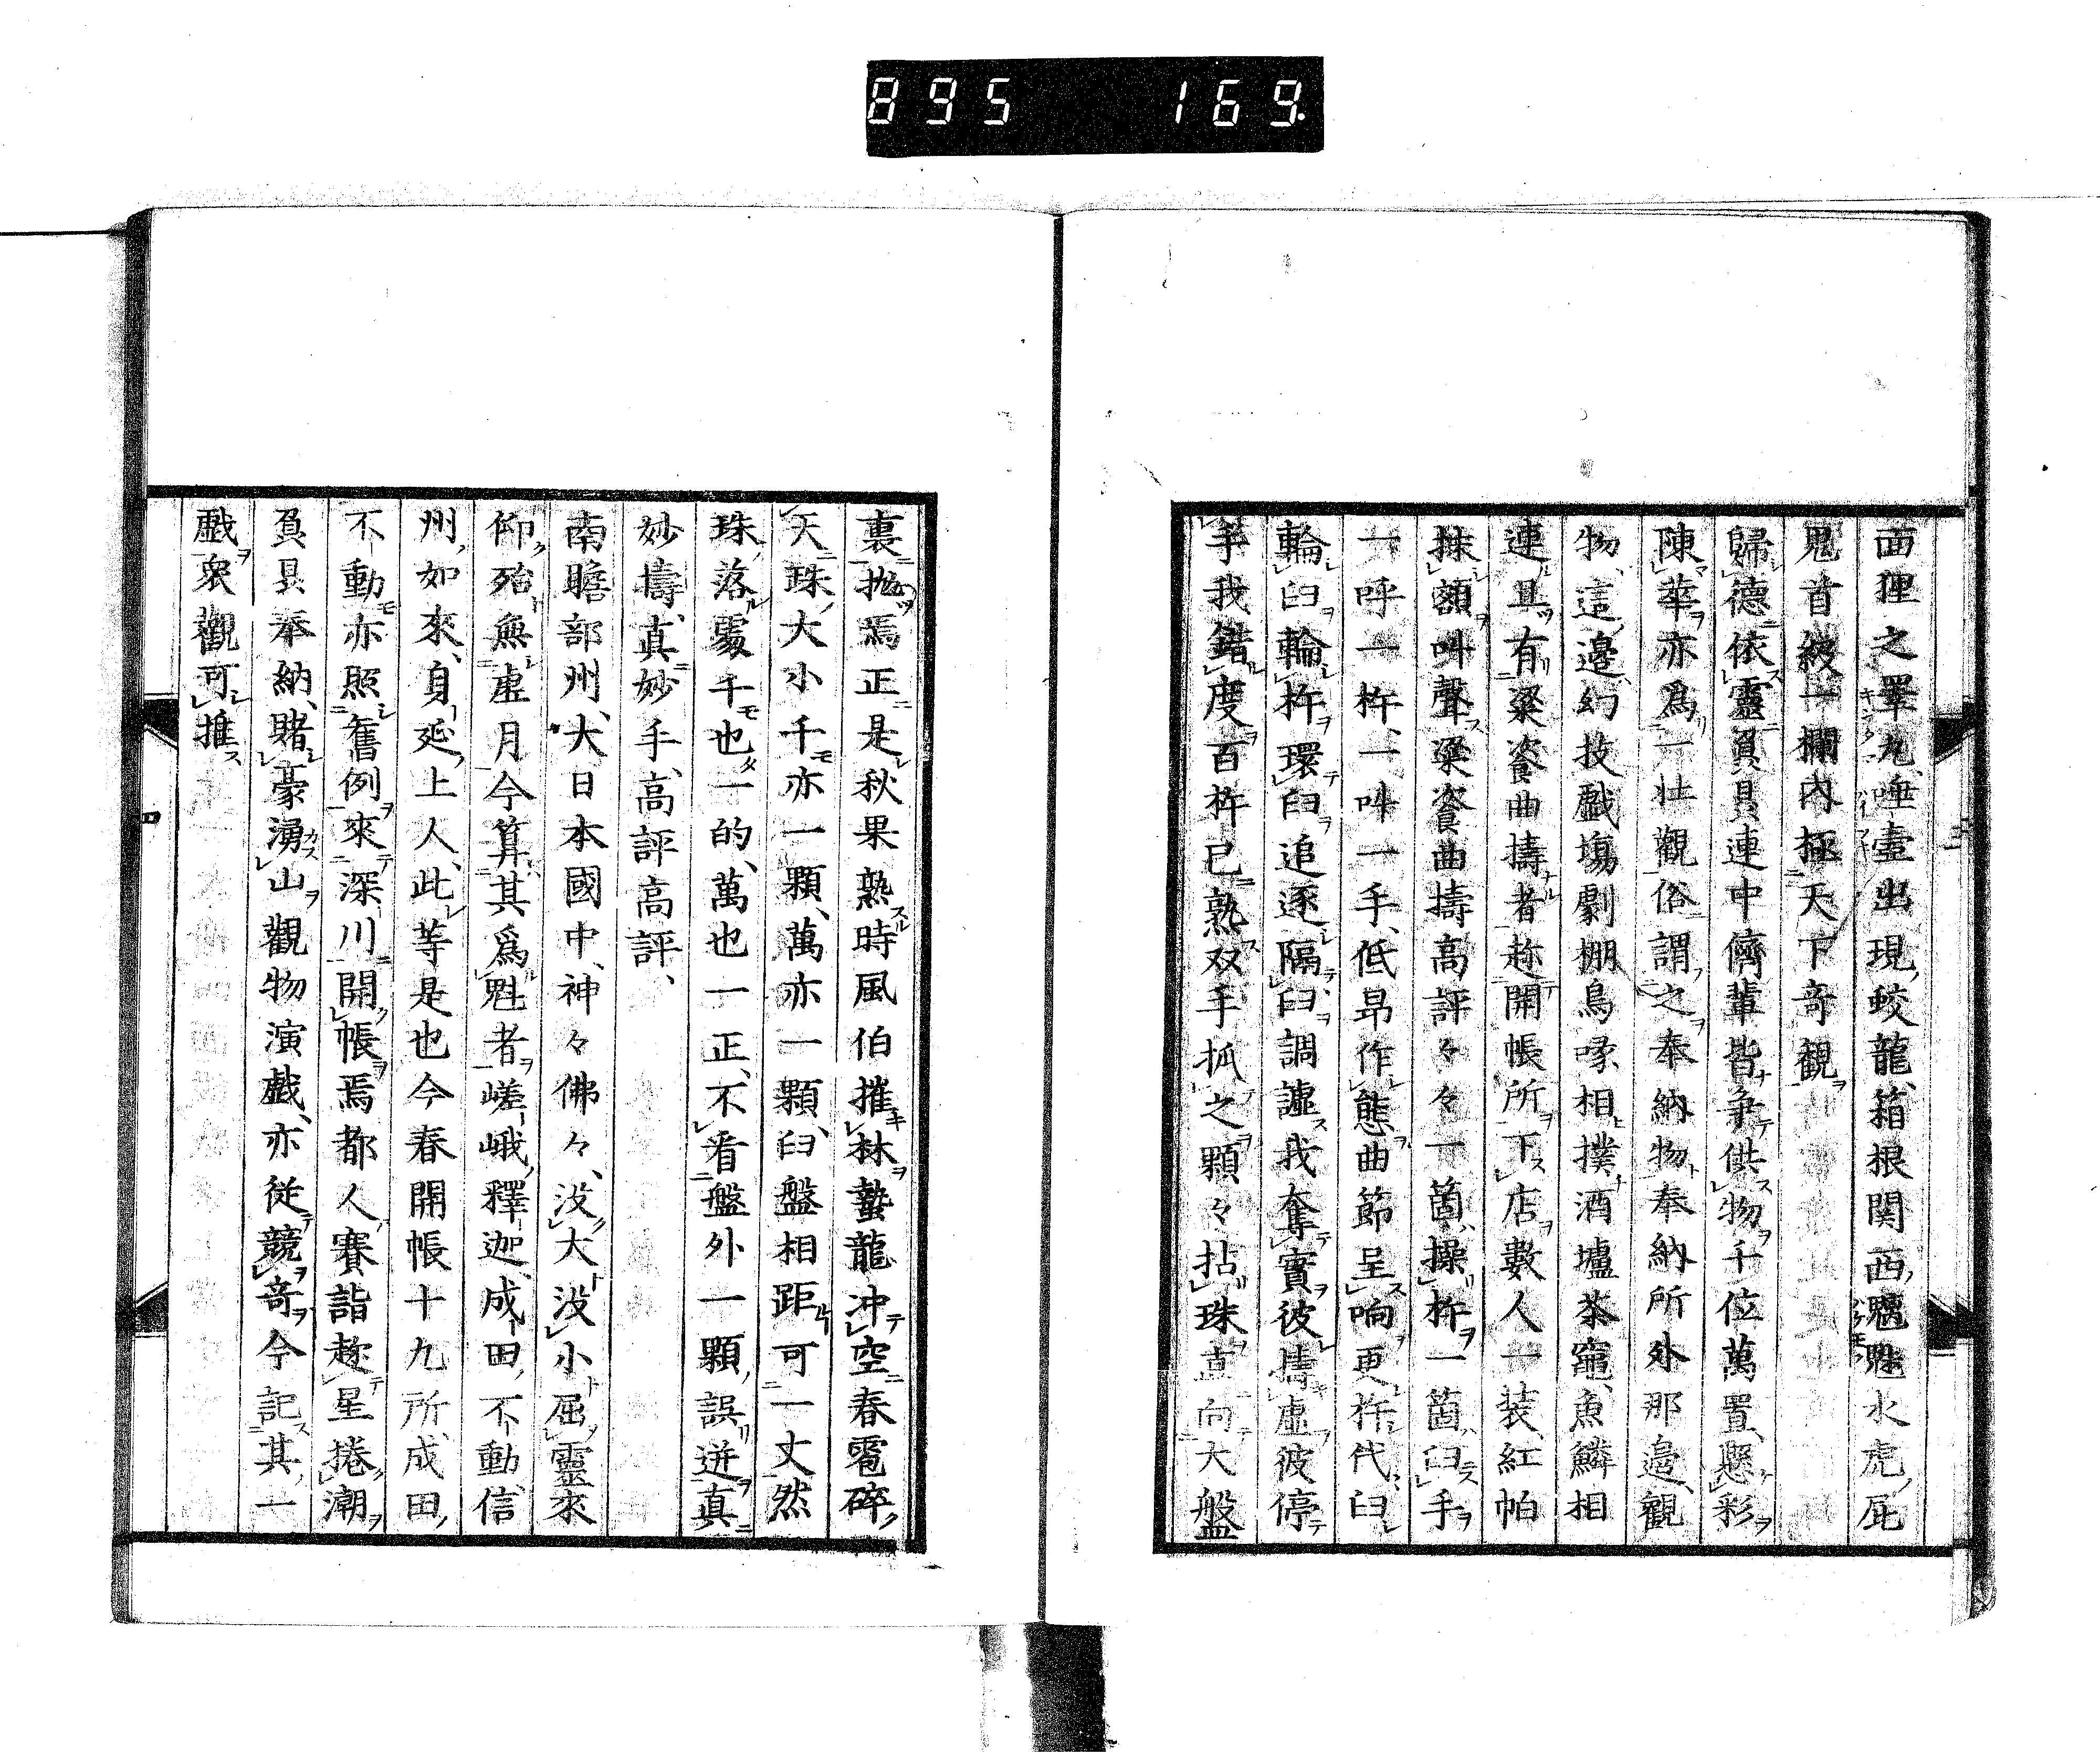 895 169
面狸之睾丸、唾壺出現、蛟龍、箱根関西、魑魅水虎、屁
鬼首級一欄内極天下奇觀
歸德依靈員具連中儕輩皆争供物千位萬置、懸彩
陳華亦爲一壯觀俗謂之奉納物奉納所外那邊、觀
物、這邊、幻技戯塲劇棚鳥喙相撲酒壚茶竈、魚鱗相
連且有粢餈曲擣者趂開帳所下店數人一装、紅帕
抹額叫聲粢餈曲擣高評々々一箇操杵一箇臼手
一呼一杵、一呌一手、低昂作態曲節呈响更杵代臼
輪臼輪杵環臼追逐隔臼調謔我奪實彼擣虚彼停
手我錯度百杵已熟双手抓之顆々拈珠直向大盤
裏抛焉正是秋果熟時風伯摧林蟄龍冲空春雹碎
天珠、大小千亦一顆、萬亦一顆、臼盤相距可一丈然
珠落處千也一的、萬也一正、不看盤外一顆、誤迸真
妙擣、真妙手、高評高評、
南瞻部州、大日本國中、神々佛々、没大没小屈靈來
仰殆無虚月今算其爲魁者嵯峨、釋迦、成田、不動、信
州、如來、身延、上人、此等是也今春開帳十九所、成田、
不動亦照舊例來深川開帳焉都人賽詣趂星捲潮
員具奉納、賭豪湧山觀物演戯、亦従競奇今記其、一
戯衆觀可推